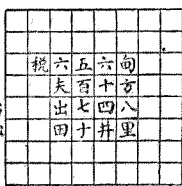 甸方八里
六十四井
五百七十
六夫出田
税